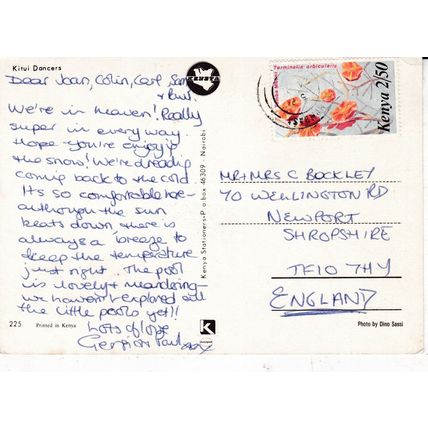 Kitui Dancers
Dear Joan, Colin, Carl, Sam
+ Paul.
We're in heaven! Really
super in every way.
Hope you're enjoying
the snow! We're dreading
coming back to the cold.
It's so comfortable here
although the sun
beats down, there is
always a breeze to
keep the temperature
just right. The pool
is lovely + meandering -
we haven't explored all
the little pools yet!!
Lots of love
Paul
225 Printed in Kenya
Kenya Stationers P.o box 46309 Nairobi
K
KENYA
Terminalia orbicularis
Kenya 2/50
MR + MRS C BOCKLEY
70 WELLINGTON RD
NEWPORT
SHROPSHIRE
TF10 7HY
ENGLAND
Photo by Dino Sassi